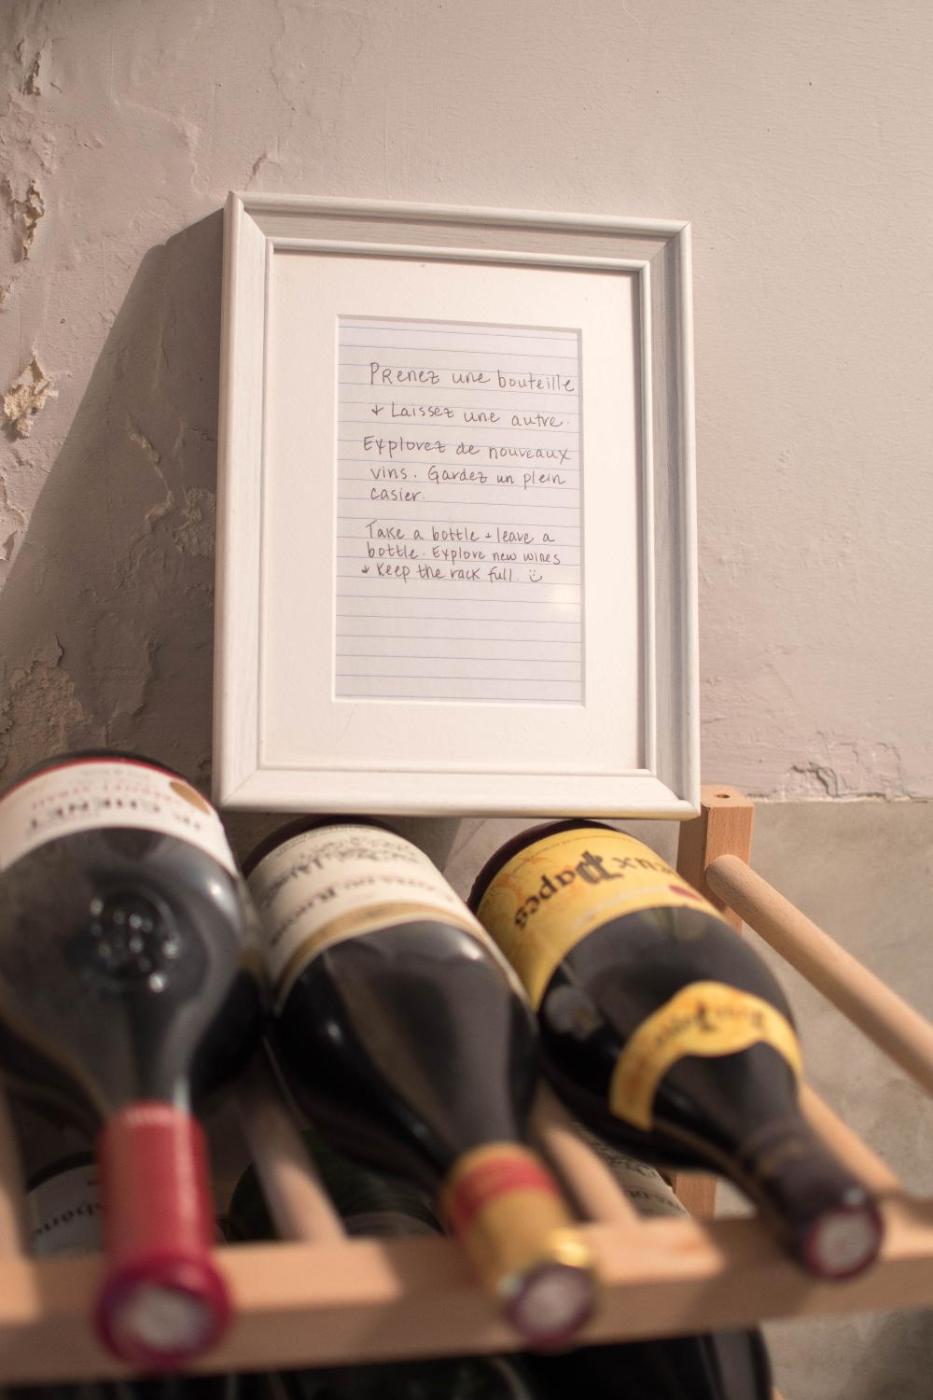 Prenez une bouteille
+ Laissez une autre.
Explorez de nouveaux
vins. Gardez un plein
casier.
Take a bottle + leave a
bottle. Explore new wines
+ keep the rack full. ☺
Papes